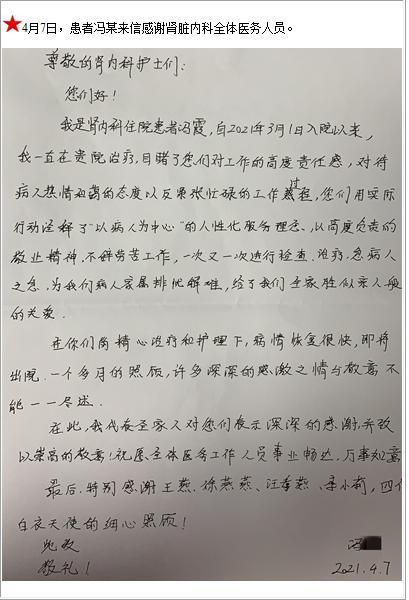 4月7日，患者冯某来信感谢肾脏内科全体医务人员。
尊敬的肾内科护士们：
您们好！
我是肾内科住院患者冯霞，自2021年3月1日入院以来，
我一直在贵院治疗，目睹了您们对工作的高度责任感，对待
病人热情和蔼的态度以及紧张忙碌的工作过程，您们用实际
行动诠释了“以病人为中心”的人性化服务理念、以高度负责的
敬业精神，不辞劳苦工作，一次又一次进行检查.治疗，急病人
之急，为我们病人家属排忧解难，给了我们全家胜似亲人般
的关爱.
在你们的精心治疗和护理下，病情恢复很快，即将
出院.一个多月的照顾，许多深深的感激之情与敬意不
能一一尽述.
在此，我代表全家人对您们表示深深的感谢，并致
以崇高的敬意！祝愿全体医务工作人员事业畅达，万事如意
最后.特别感谢王燕、徐燕燕、汪 燕、 小莉，四个
白衣天使的细心照顾！
此致
冯
敬礼！
2021.4.7